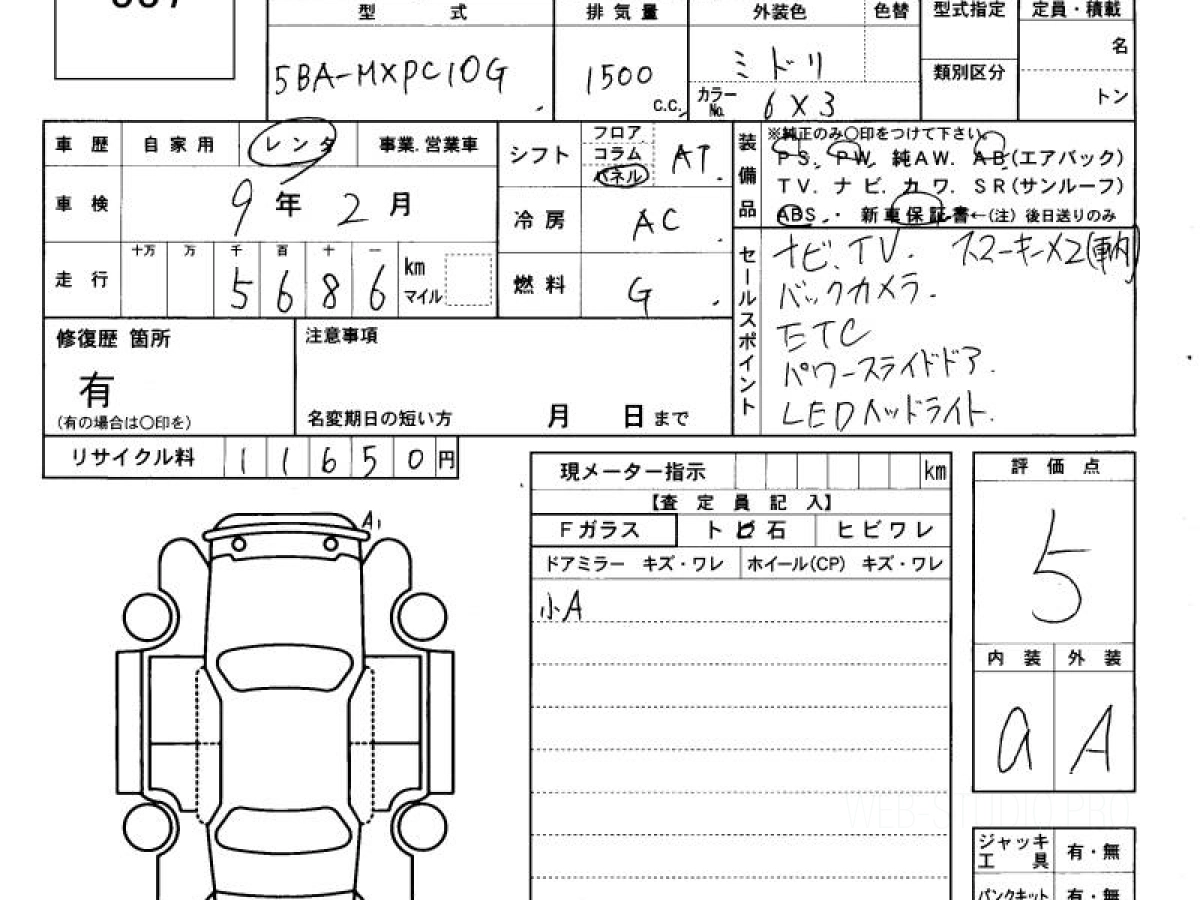 型式 排気量 外装色 色替 型式指定 定員・積載
5BA-MXPC10G 1500 c.c. ミドリ 名
類別区分
カラーNo. 6X3 トン
車歴 自家用 レンタ 事業.営業車
シフト フロア コラム パネル AT
装備品 ※純正のみ〇印をつけて下さい。
PS. PW. 純AW. AB(エアバック)
TV. ナビ. カワ. SR(サンルーフ)
ABS.・ 新車保証書←(注) 後日送りのみ
車検 9年2月
冷房 AC
走行 十万 万 千 百 十 一
5686 km マイル
燃料 G
セールスポイント
ナビ、TV. スマーキー×2(車内)
バックカメラ.
ETC
パワースライドドア.
LEDヘッドライト.
修復歴 箇所
有
(有の場合は〇印を)
注意事項
名変期日の短い方 月 日まで
リサイクル料 11650円
現メーター指示 km
【査定員記入】
Fガラス トビ石 ヒビワレ
ドアミラー キズ・ワレ ホイール(CP) キズ・ワレ
小A
A1
評価点
5
内装 外装
a A
WEB-STUDIO.PRO
ジャッキ 工具 有・無
パンクキット 有・無